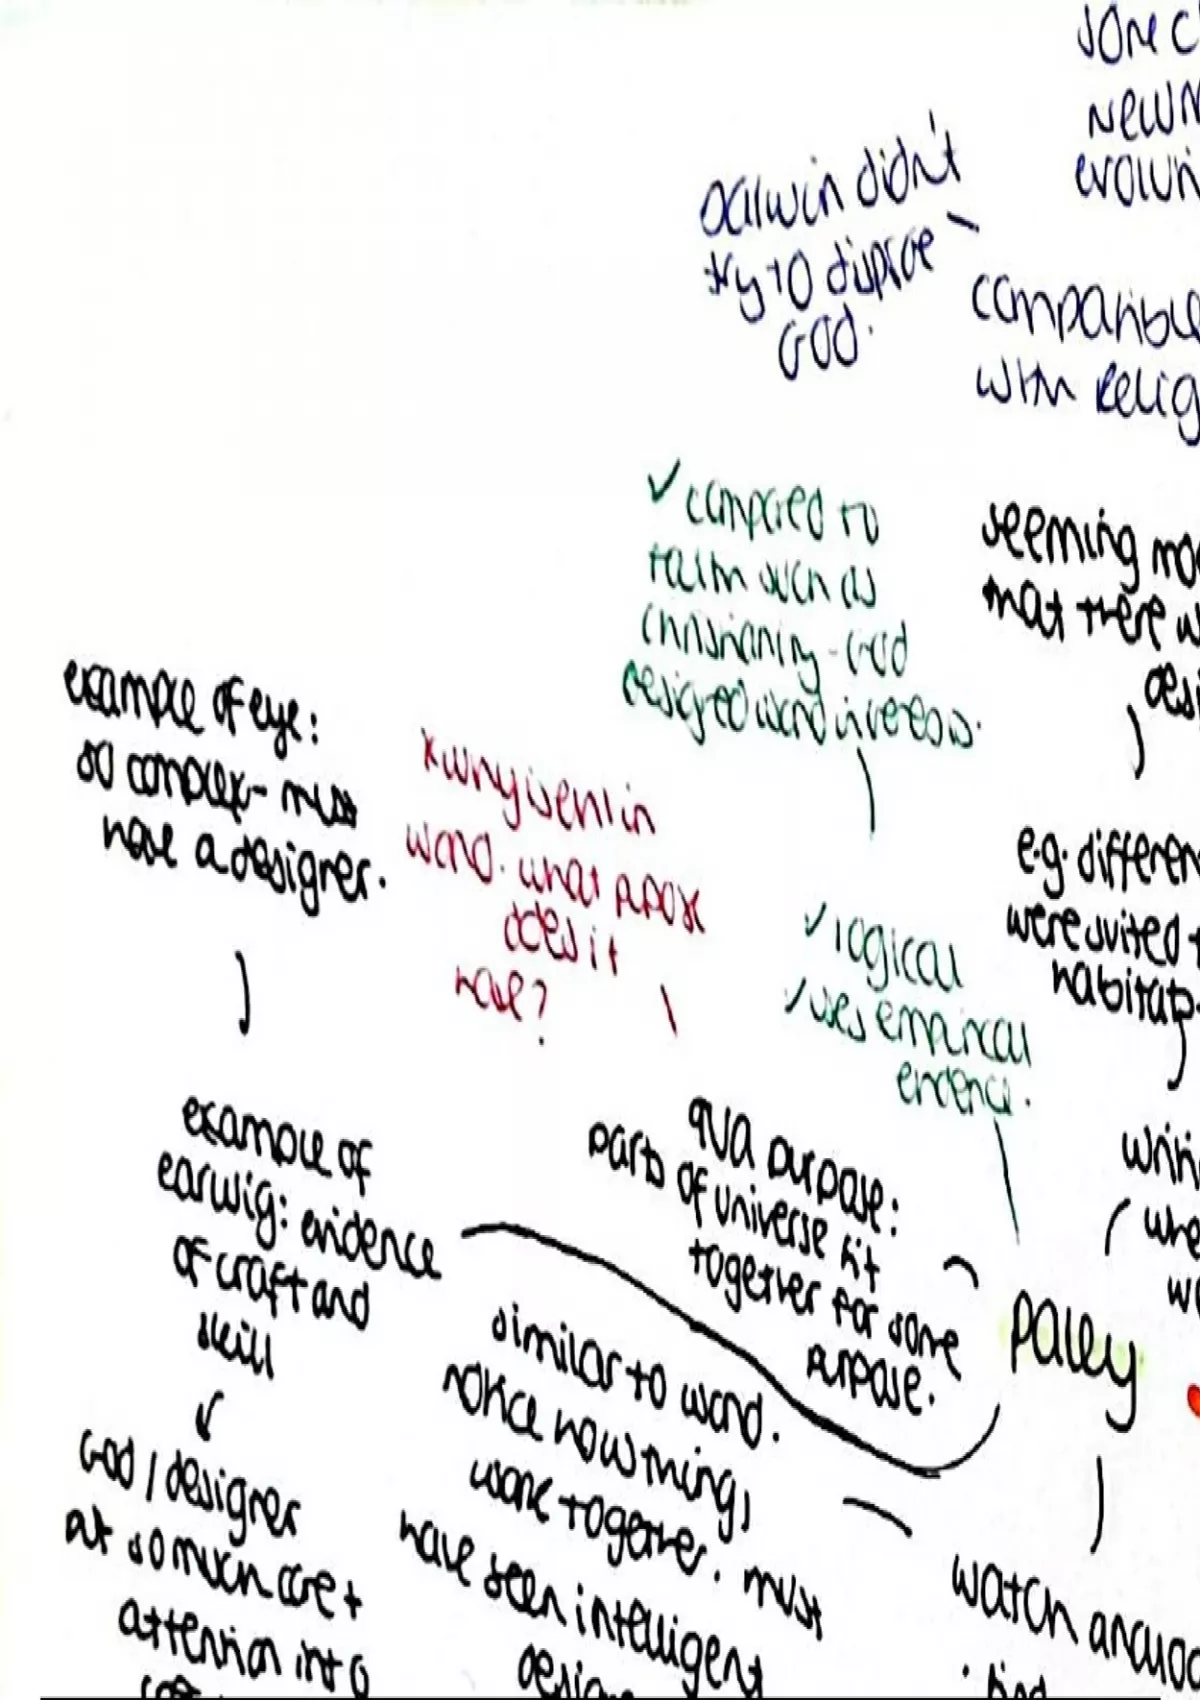 some c
Newm
evolution
Darwin didn't
try to disprove
God.
compatible
with relig
✓ compared to
faith such as
Christianity - God
designed world in seven days.
seeming mo
that there w
desi
example of eye:
so complex - must
have a designer.
x why is evil in
world. what purpose
does it
have?
e.g. differen
were suited t
habitats.
✓ logical
✓ uses empirical
evidence.
example of
earwig: evidence
of craft and
skill
God / designer
at so much care +
attention into
qua purpose:
parts of universe fit
together for some
purpose.
Paley
similar to world.
notice how things
work together. must
have seen intelligent
design
writi
whe
w
watch analog
find